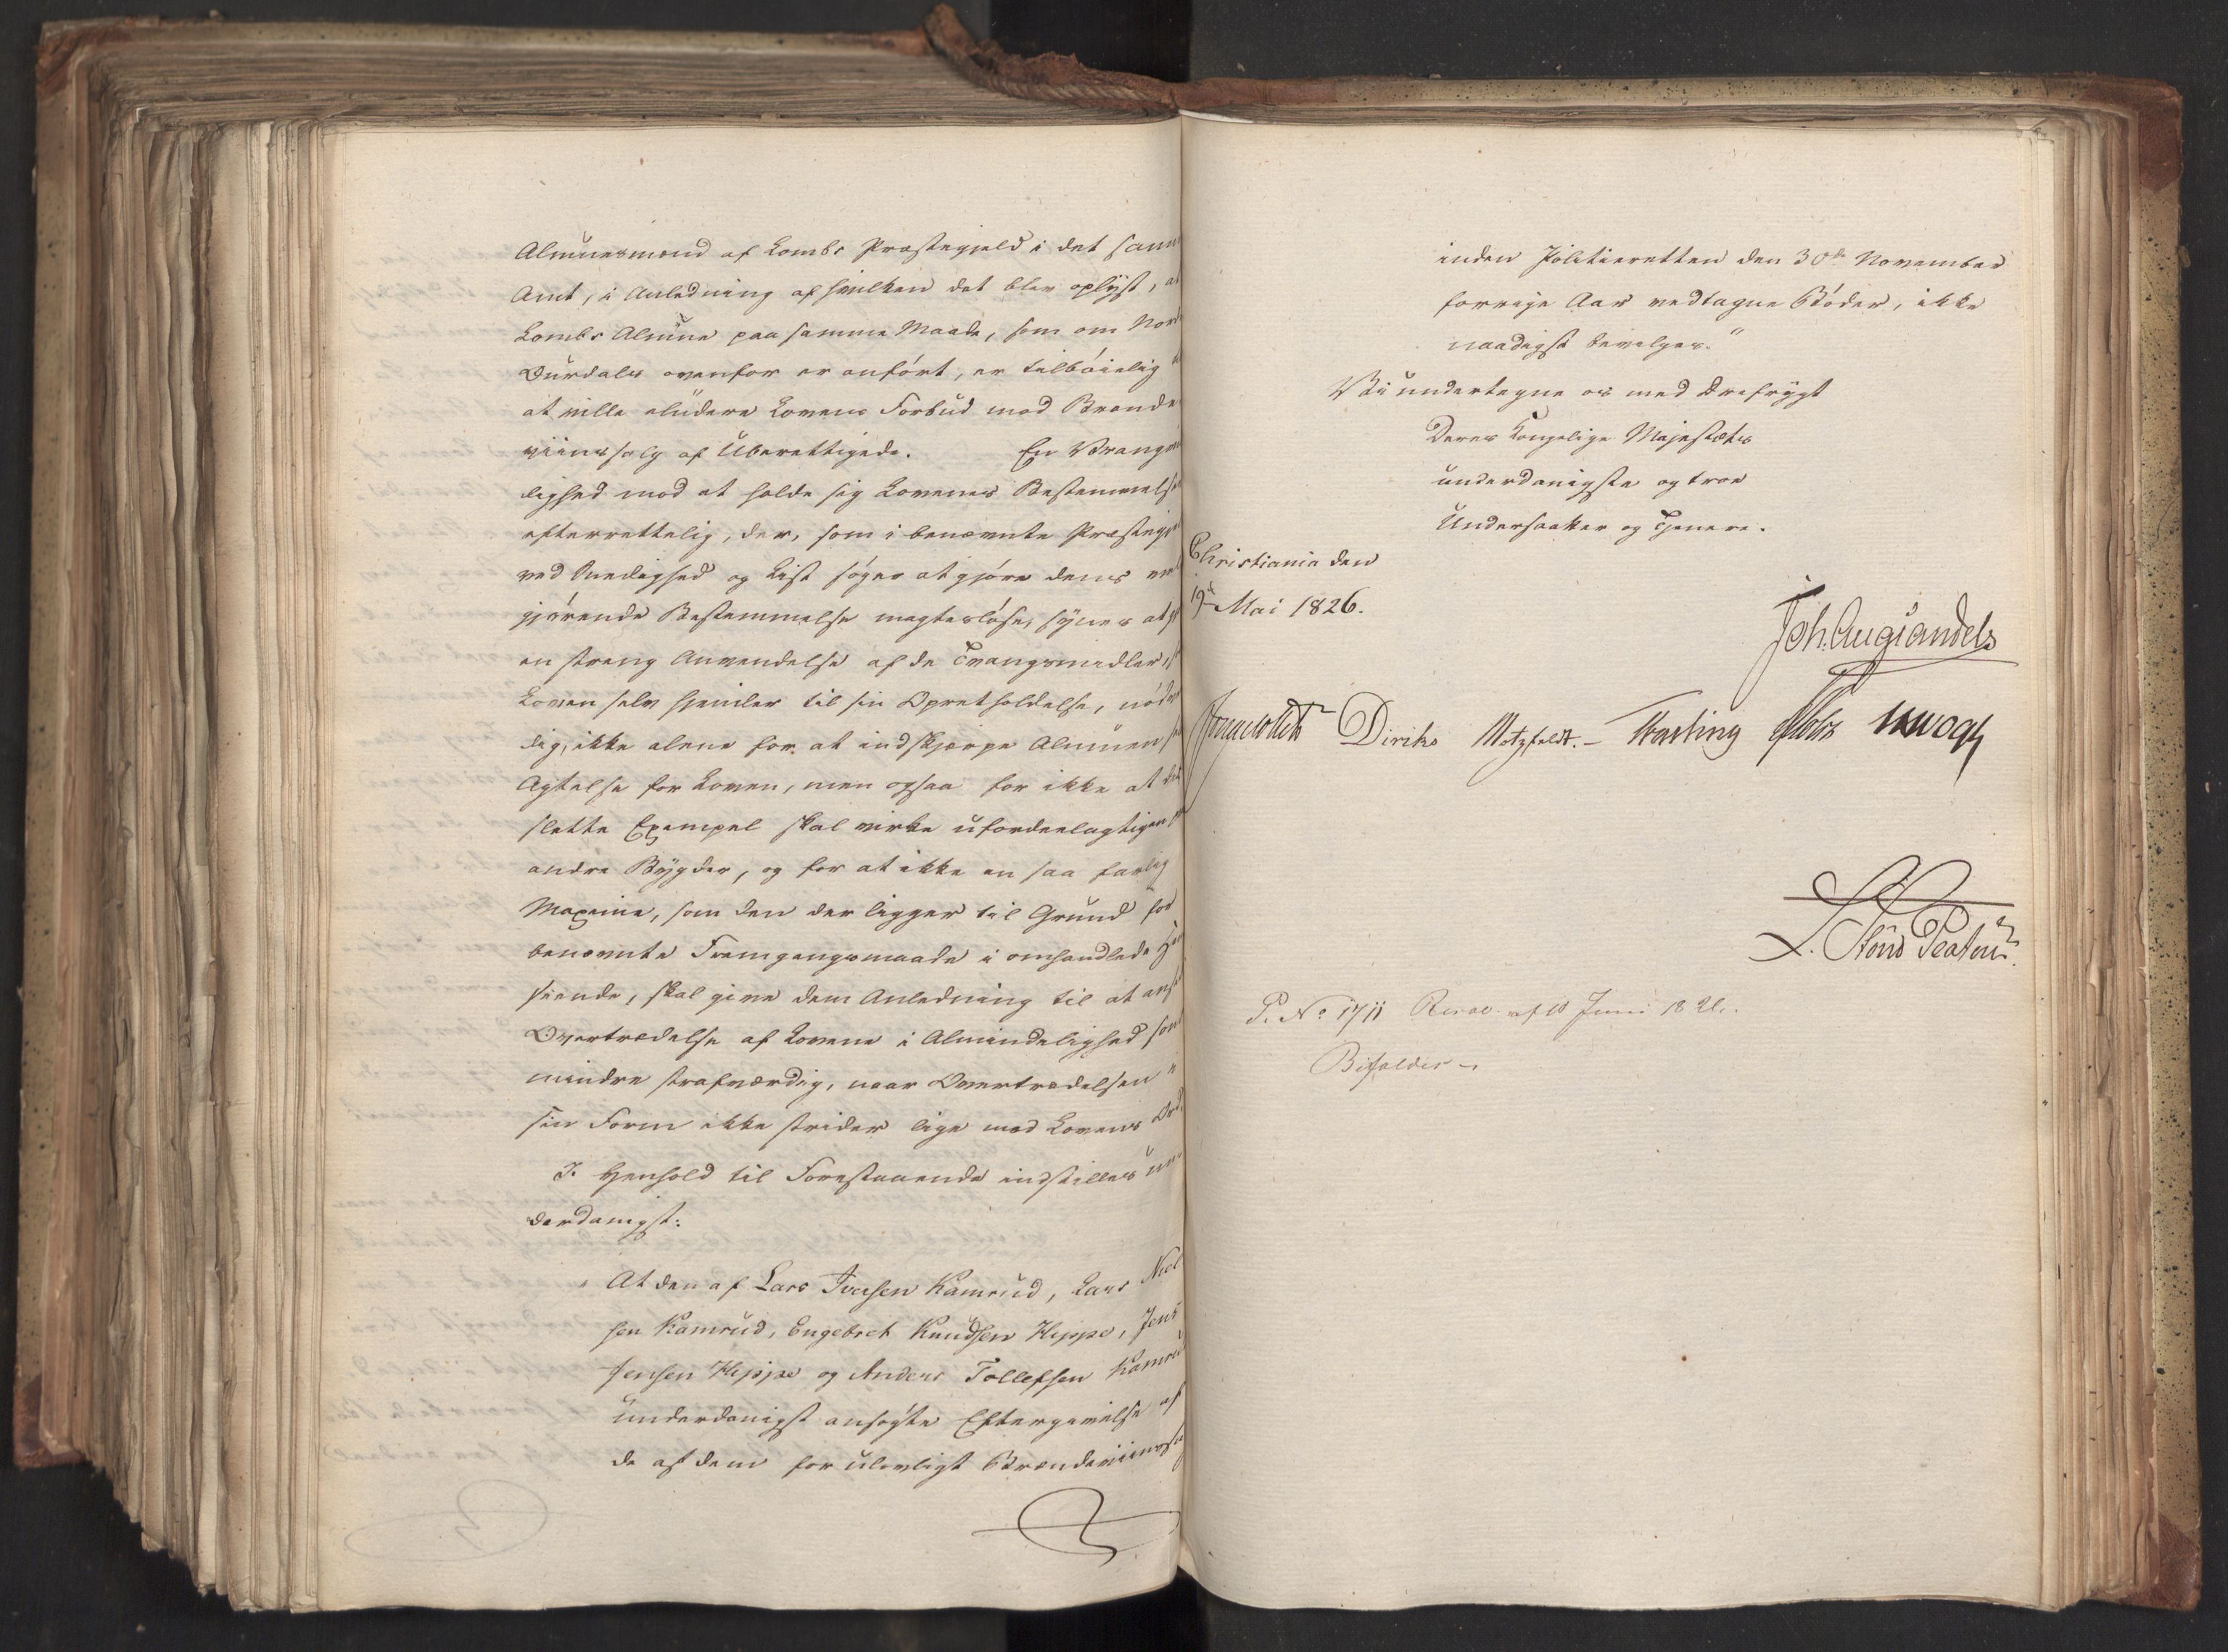 Almuesmænd af Lombs Præstegjeld i det samme
Amt, i Anledning af hvilken det blev oplyst, at
Lombs Almue paa samme Maade, som om Nord
Ourdals ovenfor er anført, er tilbøielig
at ville eludere Lovens Forbud mod Brænde
viinssalg af Uberettigede. En Vrangvil
lighed mod at holde sig Lovenes Bestemmelser
efterrettelig, der, som i benævnte Præstegjeld
ved Snedighed og List søger at gjøre dens ved
gjørende Bestemmelse magtesløse, synes at
en streng Anvendelse af de Tvangsmidler,
Loven selv hjemler til sin Opretholdelse, nødven
dig, ikke alene for at indskjærpe Almuen
Agtelse for Loven, men ogsaa for ikke at det
slette Exempel skal virke ufordeelagtigen paa
andre Bygder, og for at ikke en saa farlig
Maxime, som den der ligger til Grund for
benævnte Fremgangsmaade i omhandlede Hen
seende, skal give dem Anledning til at ansee
Overtrædelse af Lovene i Almindelighed som
mindre strafværdig, naar Overtrædelsen i
sin Form ikke strider lige mod Lovens Ord.
I Henhold til Forestaaende indstilles un
derdanigst:
At den af Lars Iversen Kamrud, Lars Niel
sen Kamrud, Engebret Knudsen Hippe, Jens
Jensen Hippe og Anders Tollefsen Kamrud
underdanigst ansøgte Eftergivelse af
de af dem for ulovligt Brændeviinssalg
inden Politieretten den 30te November
forrige Aar vedtagne Bøder, ikke
naadigst bevilges."
Vi undertegne os med Ærefrygt
Deres Kongelige Majestæts
underdanigste og troe
Undersaatter og Tjenere.
Christiania den
19de Mai 1826.
Joh. Aug Sandels
Diriks Motzfeldt. Fasting
L. Stoud Platou
P. No 1711 Resol. af 10 Juni 1826.
Bifaldes